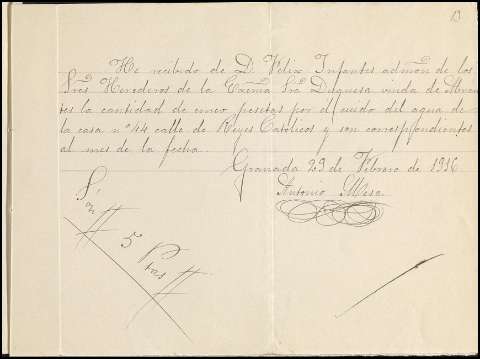 13
He recibido de D. Felix Infantes admon de los
Sres Herederos de la Exema Sra Duquesa viuda de Abran
tes la cantidad de cinco pesetas por el cuido del agua de
la casa nº 44 calle de Reyes Católicos y son correspondientes
al mes de la fecha.
Granada 29 de Febrero de 1916
Antonio Mesa
Son
# 5 Ptas #